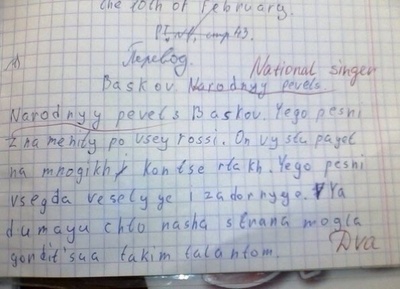 the 10th of February.
P1, №4, стр. 43.
1)
Перевод.
National singer
Baskov. Narodnyy pevets
Narodnyy pevets Baskov. Yego pesni
znamenity po vsey rossi. On vystupayet
na mnogikh kontsertakh. Yego pesni
vsegda veselyye i zadornyye. Ya
dumayu chto nasha strana mogla
gordit'saa takim talantom.
Dva